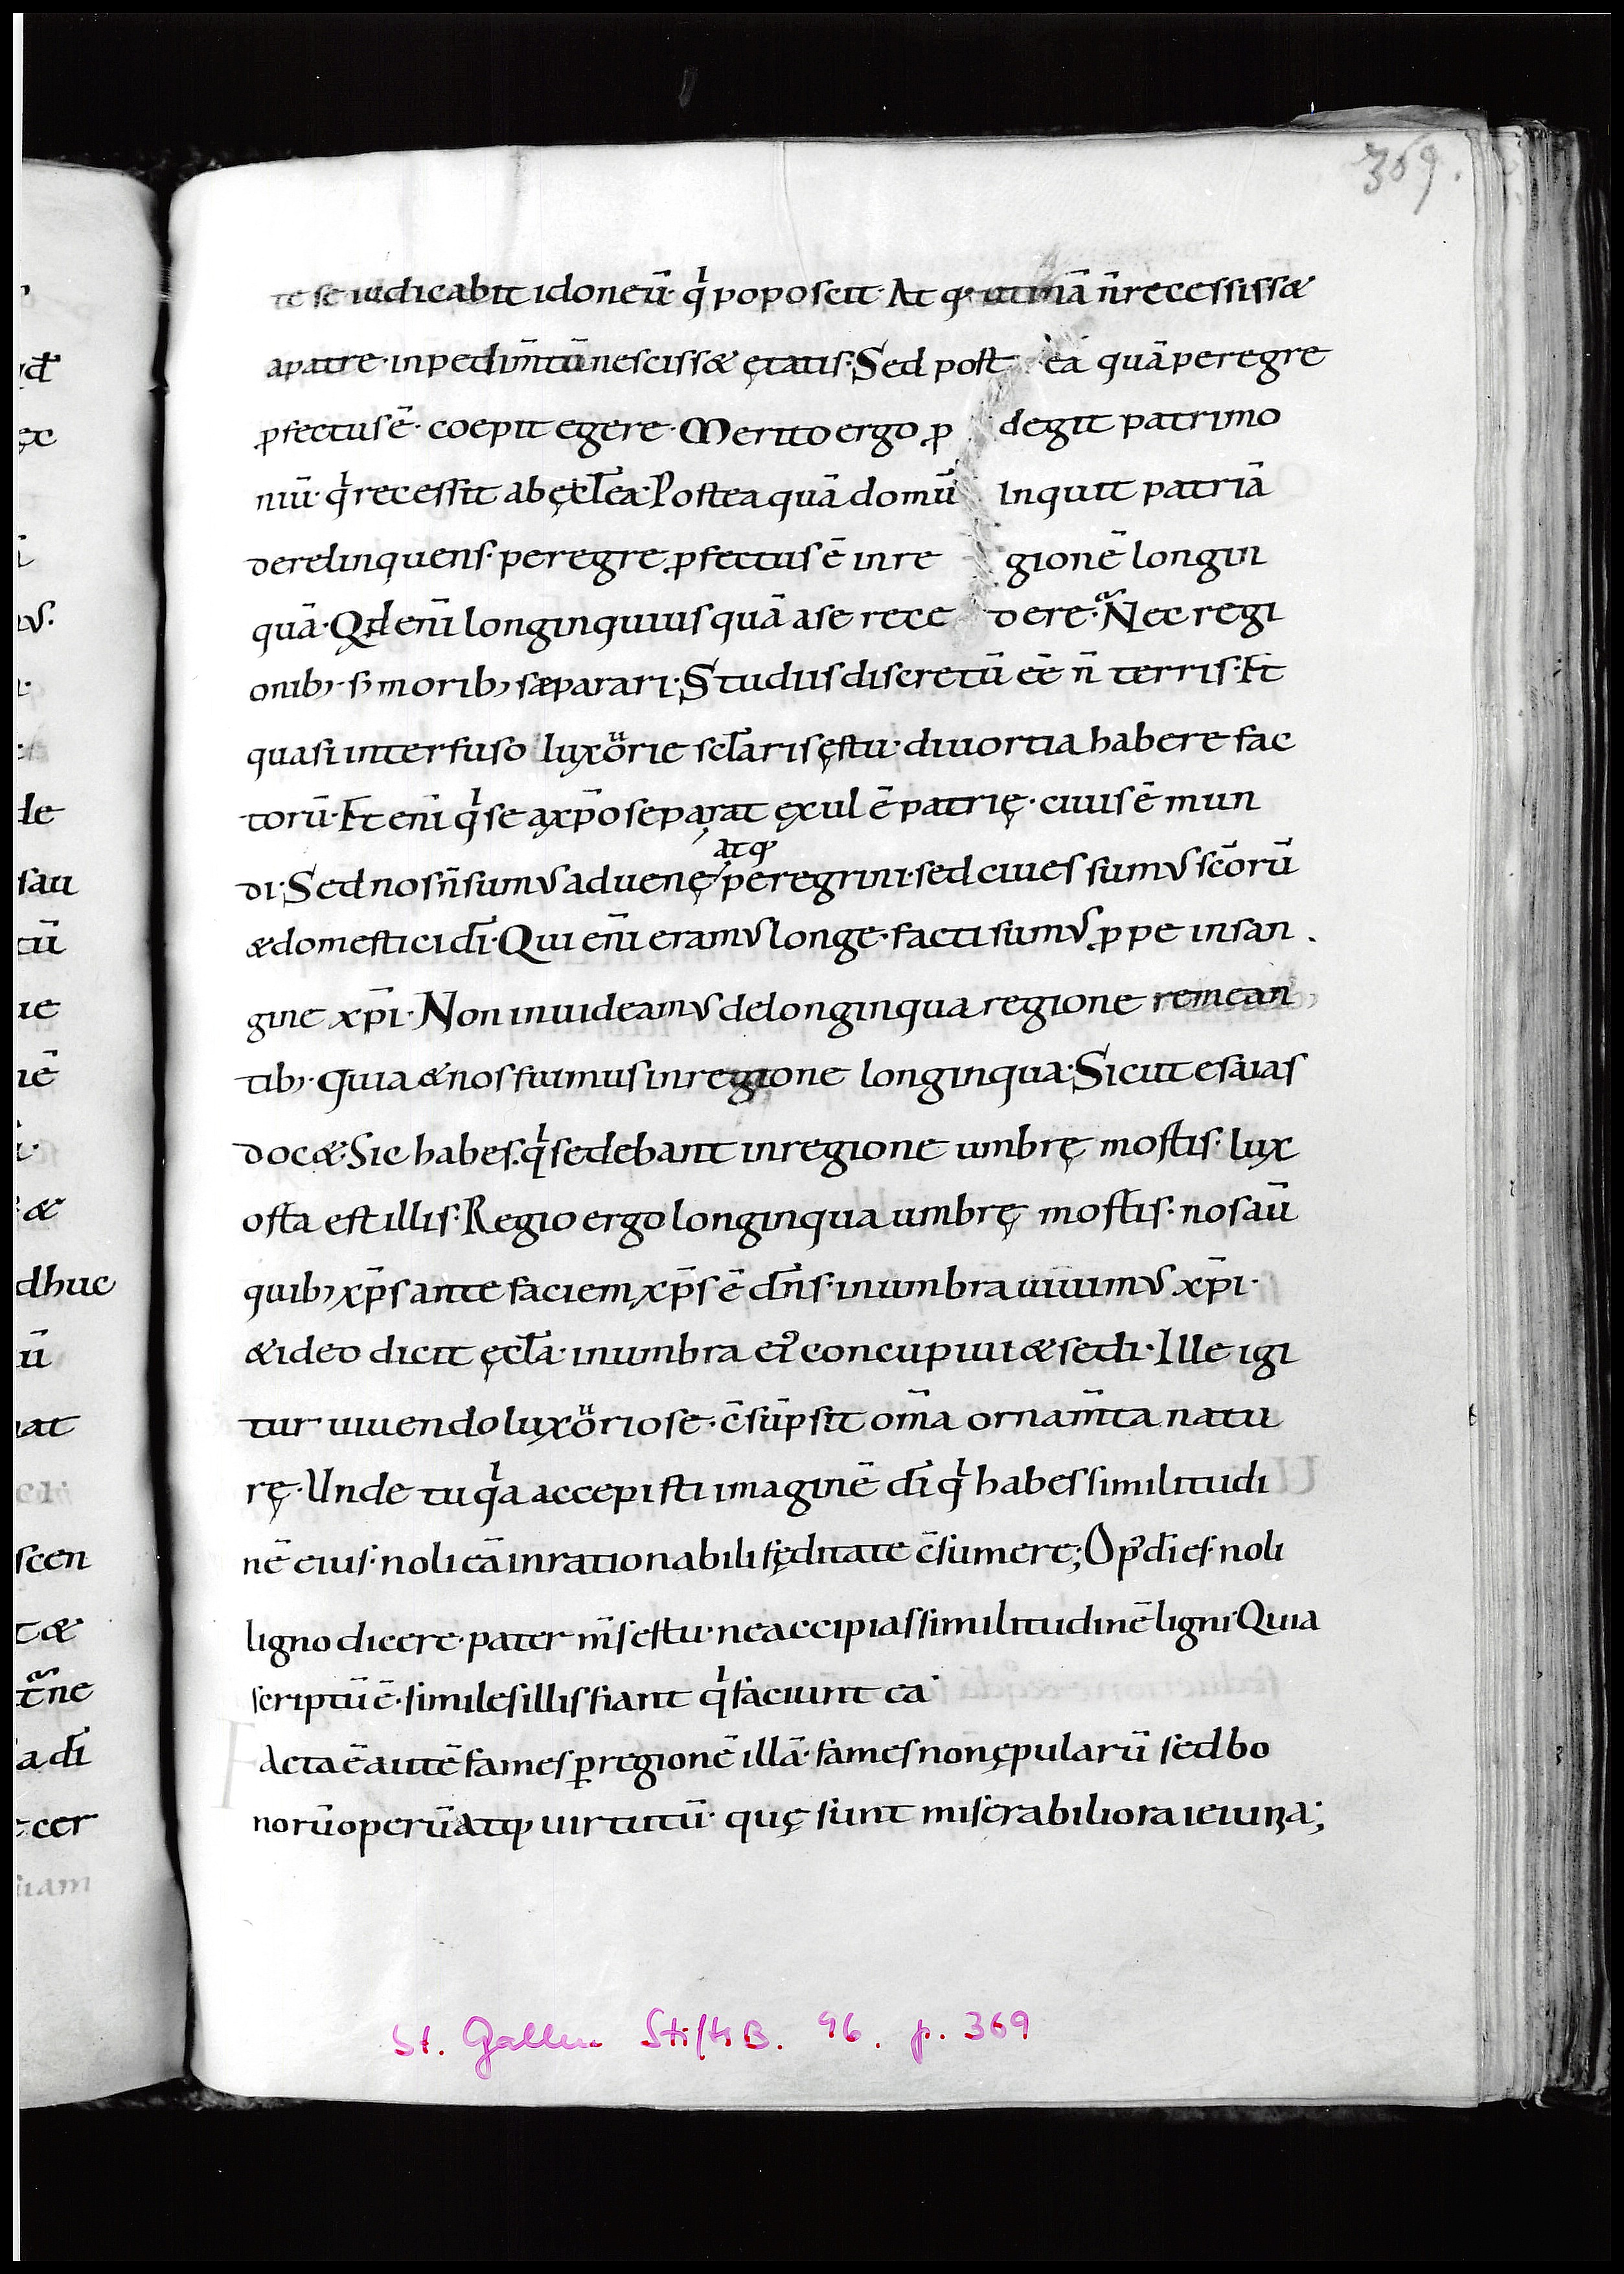 369.
te se iudicabit idoneū· qͥ poposcit· At qͥ utinā n̄ recessissæ
a patre· inpedim̄tū nescissæ ętatis·Sed post ea quā peregre
ꝓfectus ē· coepit egere· Merito ergo ꝓ degit patrimo
niū· qͥ recessit ab ęcl̄ea·Postea quā domū Inquit patriā
derelinquens· peregre ꝓfectus ē in re gionē longin
quā·Qd eni̅ longinquius quā a se rece dere·Nec regi
onib; s; morib; sæparari·Studiis discretū ee̅ n̄ terris·Et
quasi interfuso luxörię scl̄aris ęstu· diuortia habere fac
torū·Et eni̅ qͥ se a xp̄o separat ęxul ē patrię· ciuis ē mun
di·Sed nos n̄ sumus aduenę
atqꝫ
peregrini·sed ciues sumus sc̄orū
& domestici dī·Qui eni̅ eramus longe· facti sumus ꝓpe in san
gine xp̄i·Non inuideamus de longinqua regione remean
tib; quia & nos fuimus in regione longinqua·Sicut esaias
docæ·Sic habes·qͥ sedebant in regione umbrę mortis· lux
orta est illis·Regio ergo longinqua umbrę mortis· nos aū
quib; xp̄s ante faciem xp̄s ē dn̄s· in umbra uiuimus xp̄i·
& ideo dicit ęcl̄a· in umbra ei᾿ concupiui & sedi·Ille igi
tur uiuendo luxöriose· c̄sūpsit om̄a ornam̄ta natu
rę·Unde tu qͥa accepisti imaginē dī qͥ habes similitudi
nē eius· noli eā inrationabili fęditate c̄sumere; Op᾿ dī es· noli
ligno dicere· pater m̄s es tu· ne accipias similitudinē ligni·Quia
scriptū ē· similes illis fiant qͥ faciunt ea·
Facta ē autē fames ꝑ regionē illā· fames non ępularū sed bo
norū operū atqꝫ uirtutū· quę sunt miserabiliora ieiuna;
St. Gallen StiftsB. 96. p. 369